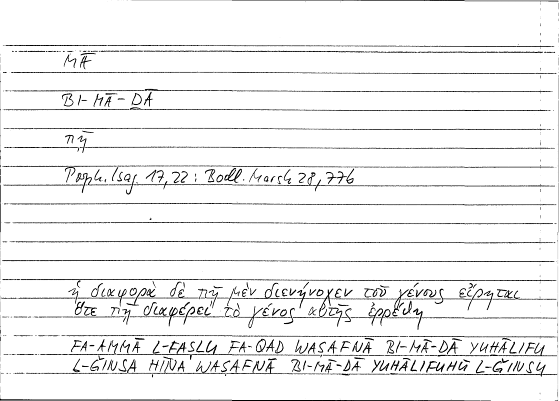 MĀ
BI-MĀ-ḎĀ
πῇ
Porph. Isag. 17,22 : Bodl. Marsh 28, 77b
ἡ διαφορὰ δὲ πῇ μὲν διενήνοχεν τοῦ γένους εἴρηται
ὅτε πῇ διαφέρει τὸ γένος αὐτῆς ἐρρέθη
FA-AMMĀ L-FAṢLU FA-QAD WAṢAFNĀ BI-MĀ-ḎĀ YUḪĀLIFU
L-ǦINSA ḤĪNA WAṢAFNĀ BI-MĀ-ḎĀ YUḪĀLIFUHŪ L-ǦINSU